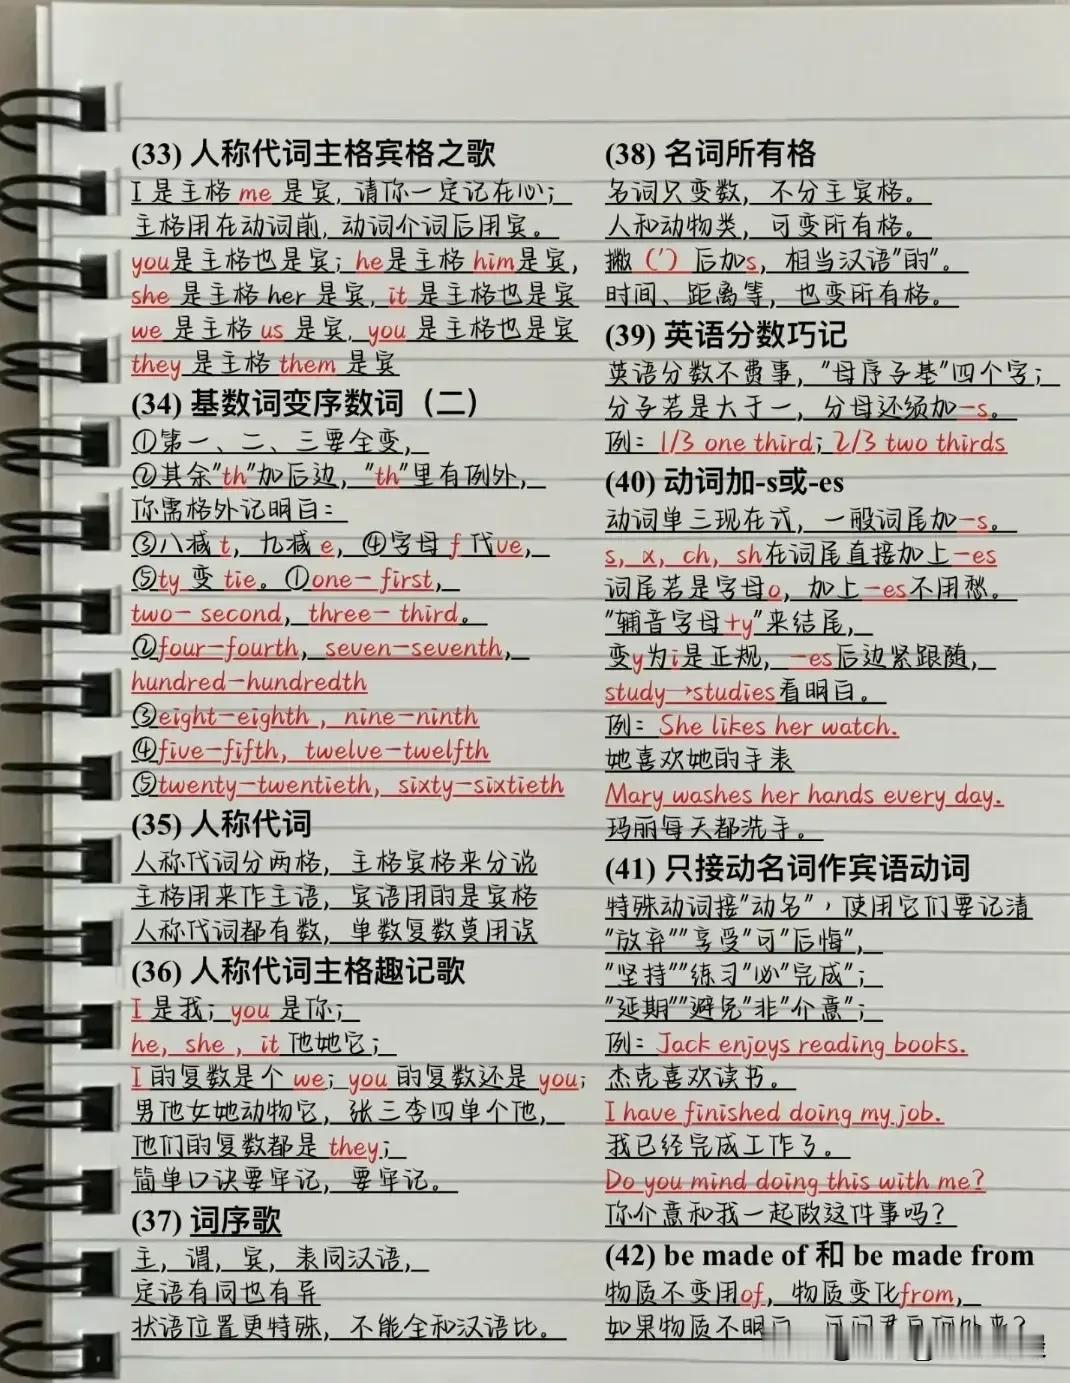 (33) 人称代词主格宾格之歌
I 是主格 me 是宾, 请你一定记在心;
主格用在动词前, 动词介词后用宾。
you是主格也是宾; he是主格 him是宾,
she 是主格 her 是宾, it 是主格也是宾
we 是主格 us 是宾, you 是主格也是宾
they 是主格 them 是宾
(34) 基数词变序数词（二）
①第一、二、三要全变,
②其余"th"加后边, "th"里有例外,
你需格外记明白:
③八减 t, 九减 e, ④字母 f 代ve,
⑤ty 变 tie。①one—first,
two—second, three—third。
②four—fourth, seven—seventh,
hundred—hundredth
③eight—eighth, nine—ninth
④five—fifth, twelve—twelfth
⑤twenty—twentieth, sixty—sixtieth
(35) 人称代词
人称代词分两格, 主格宾格来分说
主格用来作主语, 宾语用的是宾格
人称代词都有数, 单数复数莫用误
(36) 人称代词主格趣记歌
I 是我; you 是你;
he, she, it 他她它;
I 的复数是个 we; you 的复数还是 you;
男他女她动物它, 张三李四单个他,
他们的复数都是 they;
简单口诀要牢记, 要牢记。
(37) 词序歌
主, 谓, 宾, 表同汉语,
定语有同也有异
状语位置更特殊, 不能全和汉语比。
(38) 名词所有格
名词只变数, 不分主宾格。
人和动物类, 可变所有格。
撇（'）后加s, 相当汉语"的"。
时间、距离等, 也变所有格。
(39) 英语分数巧记
英语分数不费事, "母序子基"四个字;
分子若是大于一, 分母还须加—s。
例: 1/3 one third; 2/3 two thirds
(40) 动词加-s或-es
动词单三现在式, 一般词尾加—s。
s, x, ch, sh在词尾直接加上—es
词尾若是字母o, 加上—es不用愁。
"辅音字母+y"来结尾,
变y为i是正规, —es后边紧跟随,
study→studies看明白。
例: She likes her watch.
她喜欢她的手表
Mary washes her hands every day.
玛丽每天都洗手。
(41) 只接动名词作宾语动词
特殊动词接"动名", 使用它们要记清
"放弃""享受"可"后悔",
"坚持""练习"必"完成";
"延期""避免"非"介意";
例: Jack enjoys reading books.
杰克喜欢读书。
I have finished doing my job.
我已经完成工作了。
Do you mind doing this with me?
你介意和我一起做这件事吗?
(42) be made of 和 be made from
物质不变用of, 物质变化from,
如果物质不明